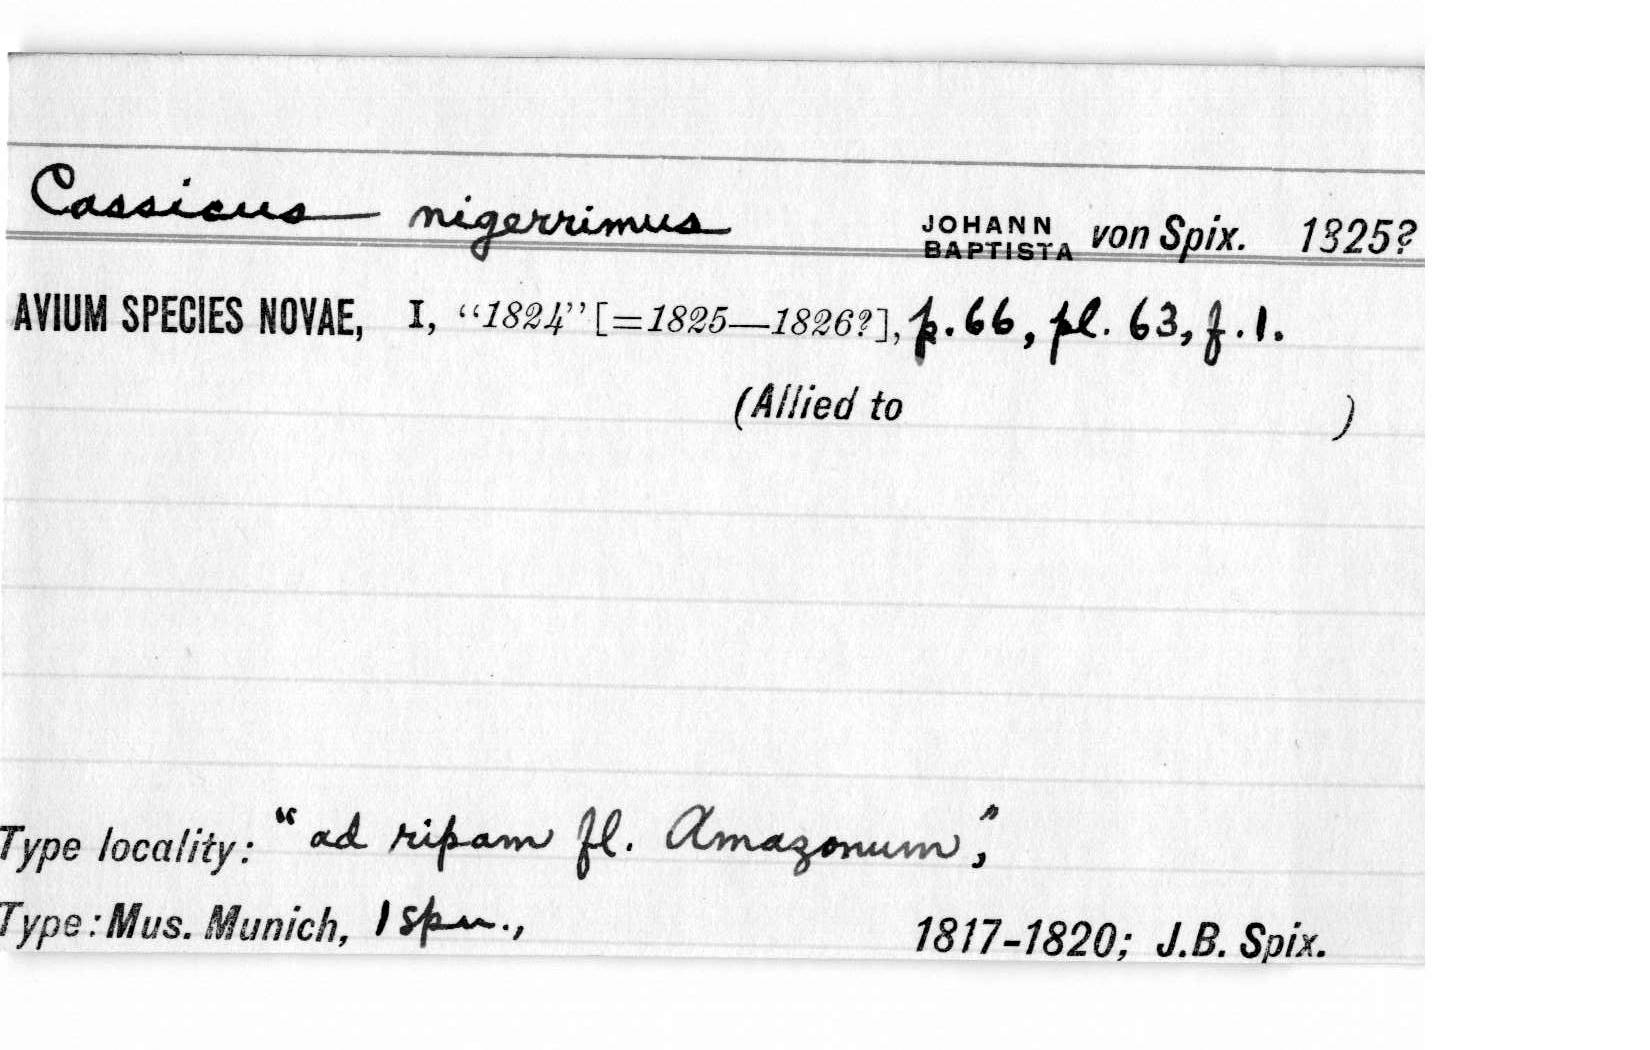 Cassicus nigerrimus JOHANN BAPTISTA von Spix. 1825?
AVIUM SPECIES NOVAE, I, “1824” [=1825—1826?], p. 66, pl. 63, f. 1.
(Allied to )
Type locality: “ad ripam fl. Amazonum”,
Type: Mus. Munich, 1 spm., 1817-1820; J.B. Spix.